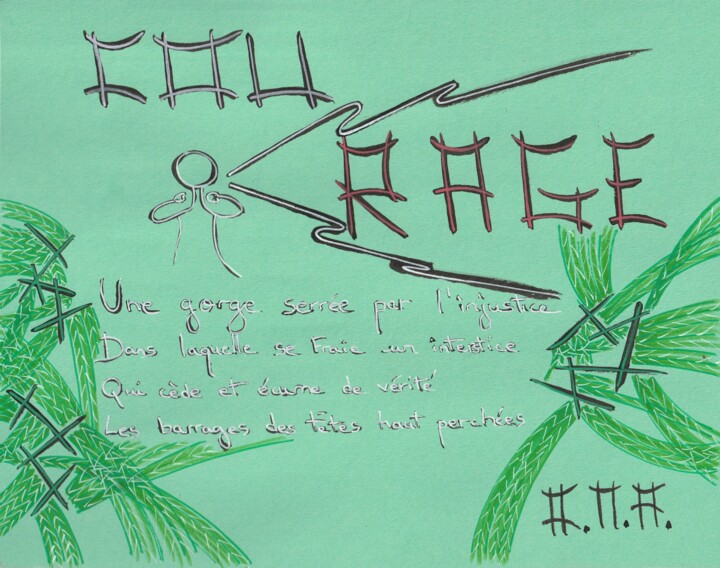 COU
RAGE
Une gorge serrée par l'injustice
Dans laquelle se fraie un interstice
Qui cède et écume de vérité
Les barrages des têtes haut perchées